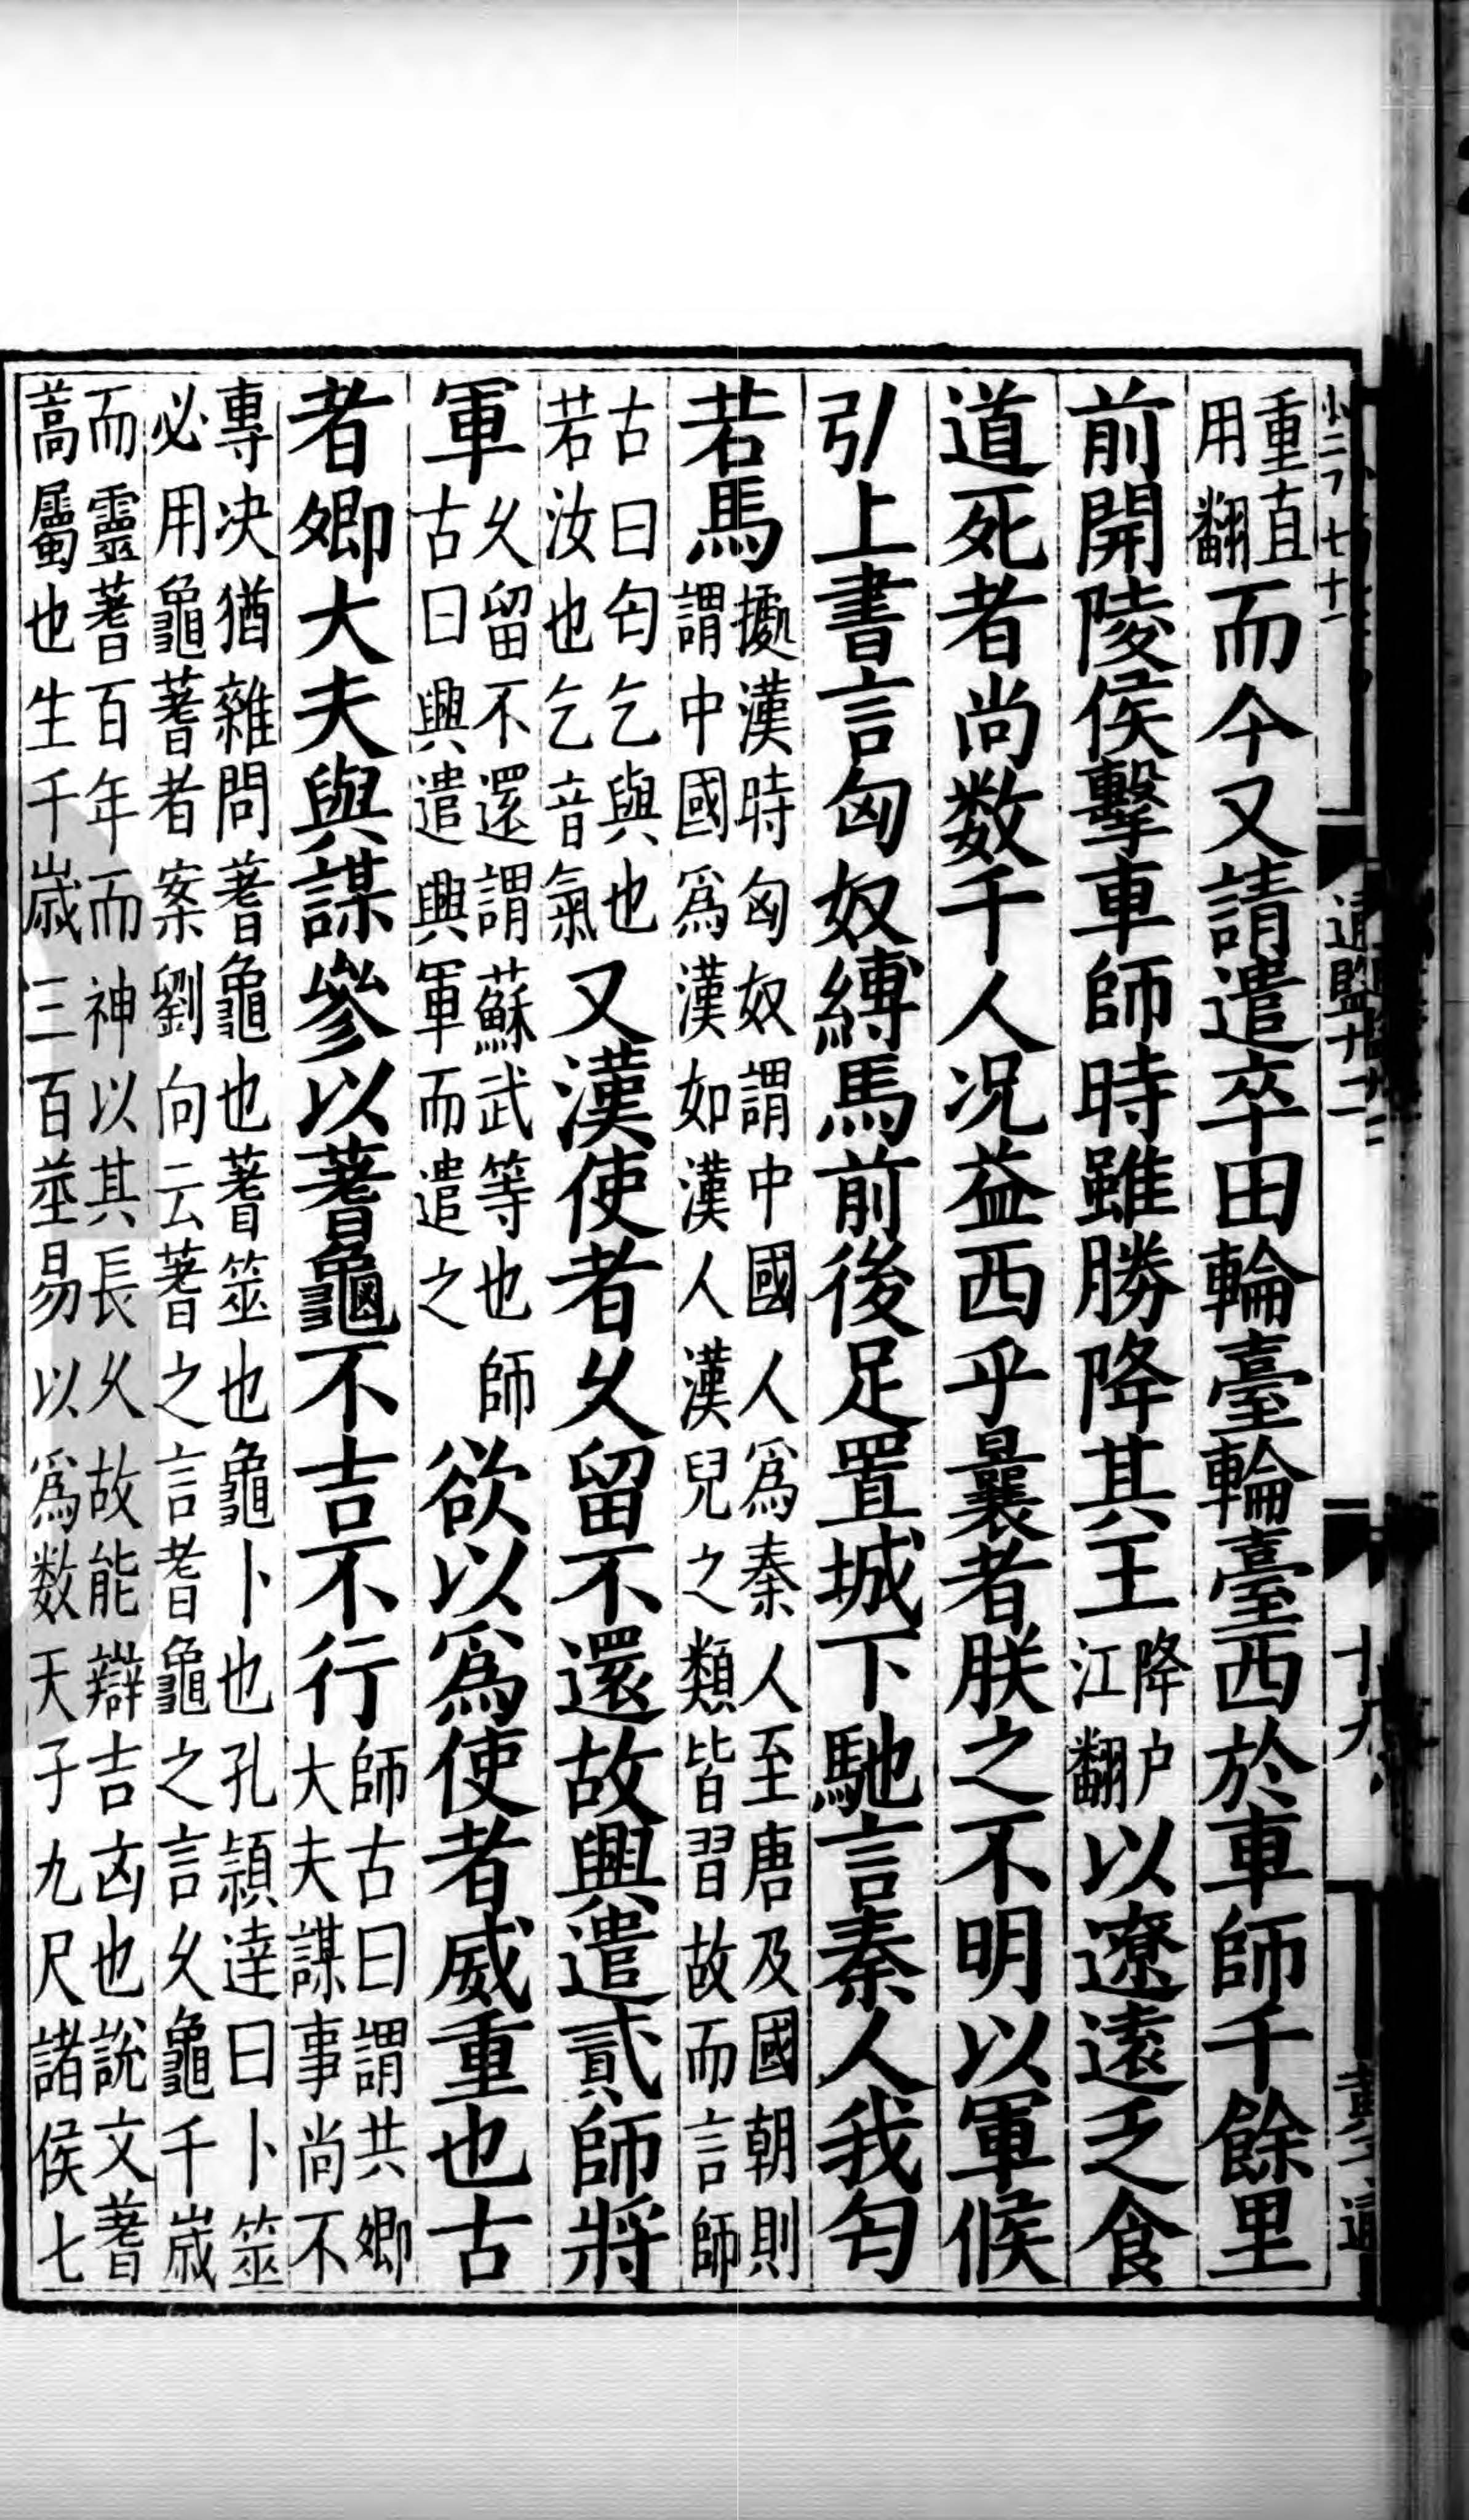 重直用翻而今又請遣卒田輪臺輪臺西於車師千餘里
前開陵侯擊車師時雖勝降其王降戶江翻以遼遠乏食
道死者尚数千人况益西乎曩者朕之不明以軍候
引上書言匈奴縛馬前後足置城下馳言秦人我匄
若馬據漢時匈奴謂中國人爲秦人至唐及國朝則謂中國爲漢如漢人漢兒之類皆習故而言師
古曰匄乞與也若汝也乞音氣又漢使者乆留不還故興遣貳師將
軍乆留不還謂蘇武等也師古曰興遣興軍而遣之欲以爲使者威重也古
者卿大夫與謀參以蓍龜不吉不行師古曰謂共卿大夫謀事尚不
專决猶雜問蓍龜也蓍筮也龜卜也孔頴逹曰卜筮必用龜蓍者案劉向云蓍之言耆龜之言乆龜千嵗
而靈蓍百年而神以其長乆故能辯吉凶也說文蓍蒿屬也生千嵗三百莖易以爲数天子九尺諸侯七
通鑑廿二
十九